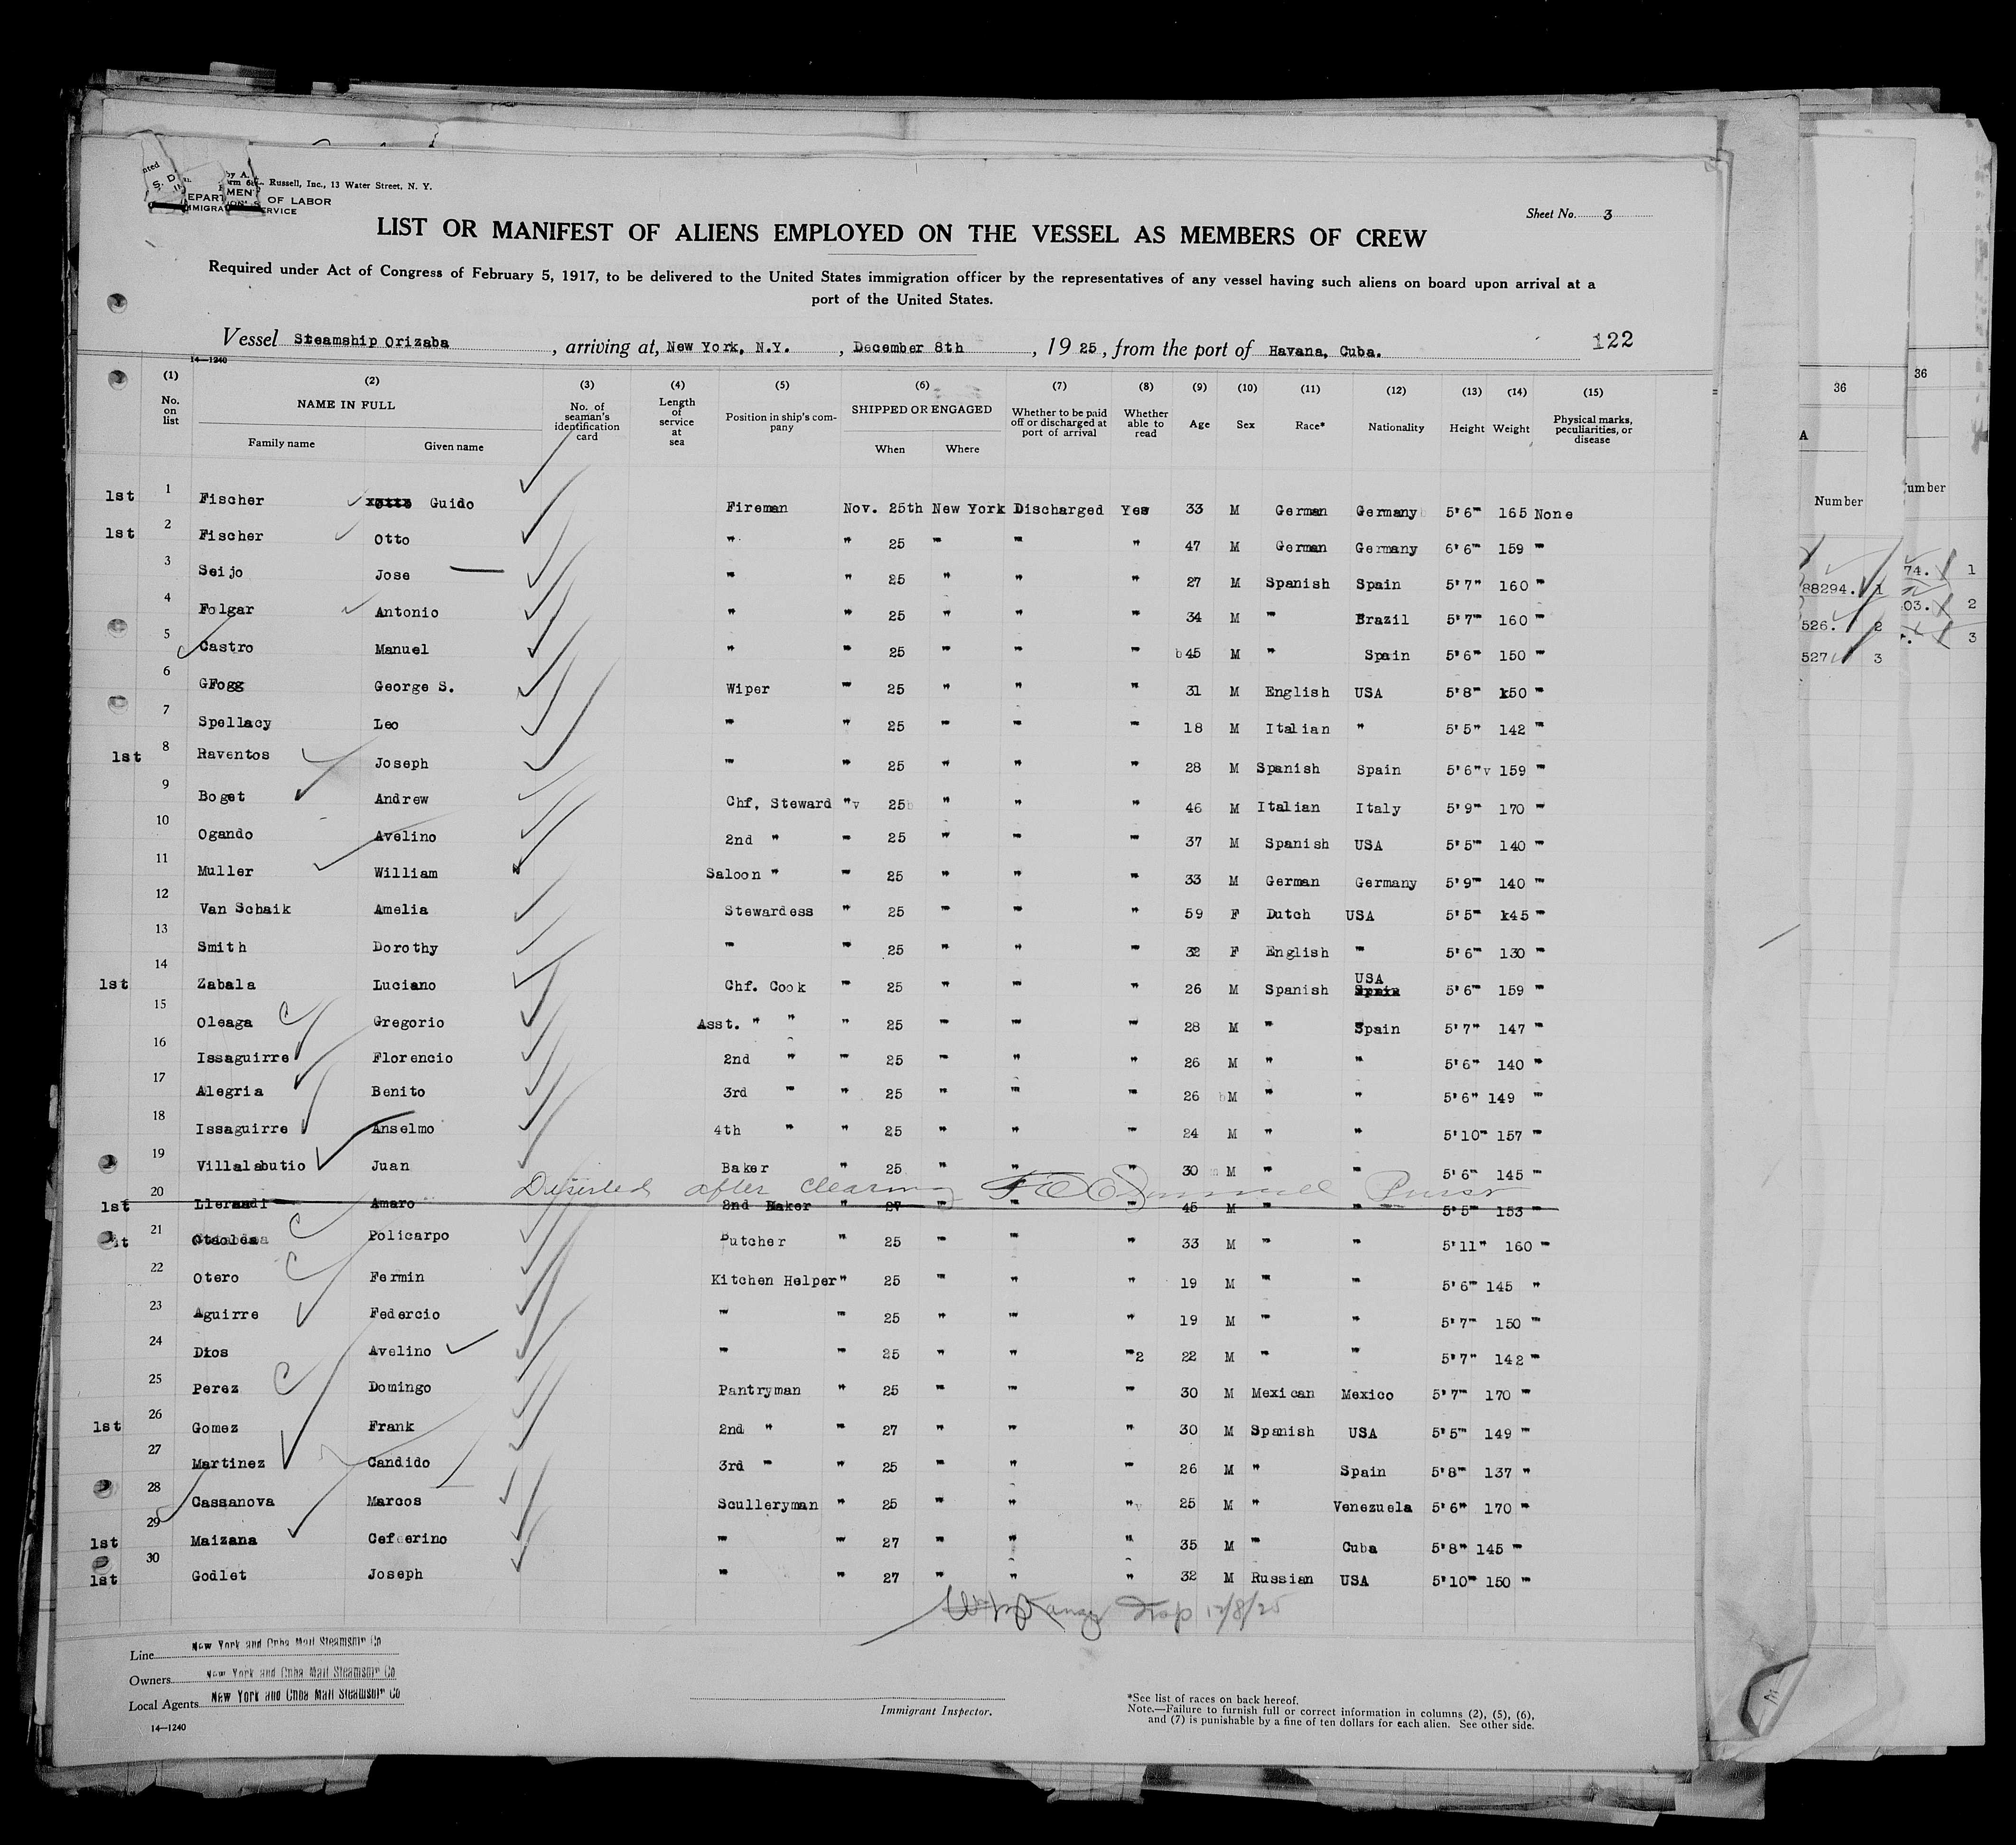 Russell, Inc., 13 Water Street, N. Y.
OF LABOR
Sheet No. 3
LIST OR MANIFEST OF ALIENS EMPLOYED ON THE VESSEL AS MEMBERS OF CREW
Required under Act of Congress of February 5, 1917, to be delivered to the United States immigration officer by the representatives of any vessel having such aliens on board upon arrival at a
port of the United States.
Vessel Steamship Orizaba, arriving at, New York, N.Y., December 8th, 1925, from the port of Havana, Cuba. 122
14—1240
(1) (2) (3) (4) (5) (6) (7) (8) (9) (10) (11) (12) (13) (14) (15)
No. on list NAME IN FULL Family name Given name No. of seaman's identification card Length of service at sea Position in ship's company SHIPPED OR ENGAGED When Where Whether to be paid off or discharged at port of arrival Whether able to read Age Sex Race* Nationality Height Weight Physical marks, peculiarities, or disease
1st 1 Fischer Guido Fireman Nov. 25th New York Discharged Yes 33 M German Germany 5'6" 165 None
1st 2 Fischer Otto " " 25 " " " 47 M German Germany 6'6" 159 "
3 Seijo Jose " " 25 " " " 27 M Spanish Spain 5'7" 160 "
4 Folgar Antonio " " 25 " " " 34 M " Brazil 5'7" 160 "
5 Castro Manuel " " 25 " " " b45 M " Spain 5'6" 150 "
6 GFogg George S. Wiper " 25 " " " 31 M English USA 5'8" 150 "
7 Spellacy Leo " " 25 " " " 18 M Italian " 5'5" 142 "
1st 8 Raventos Joseph " " 25 " " " 28 M Spanish Spain 5'6"v 159 "
9 Boget Andrew Chf, Steward "v 25 " " " 46 M Italian Italy 5'9" 170 "
10 Ogando Avelino 2nd " " 25 " " " 37 M Spanish USA 5'5" 140 "
11 Muller William Saloon " " 25 " " " 33 M German Germany 5'9" 140 "
12 Van Schaik Amelia Stewardess " 25 " " " 59 F Dutch USA 5'5" 145 "
13 Smith Dorothy " " 25 " " " 32 F English " 5'6" 130 "
1st 14 Zabala Luciano Chf. Cook " 25 " " " 26 M Spanish USA Spain 5'6" 159 "
15 Oleaga Gregorio Asst. " " " 25 " " " 28 M " Spain 5'7" 147 "
16 Issaguirre Florencio 2nd " " 25 " " " 26 M " " 5'6" 140 "
17 Alegria Benito 3rd " " 25 " " " 26 M " " 5'6" 149 "
18 Issaguirre Anselmo 4th " " 25 " " " 24 M " " 5'10" 157 "
19 Villalabutio Juan Baker " 25 " " " 30 M " " 5'6" 145 "
Deserted after clearing Purser
1st 20 Llerandi Amaro 2nd Baker " 27 " " 45 M " " 5'5" 153 "
21 Policarpo Butcher " 25 " " " 33 M " " 5'11" 160 "
22 Otero Fermin Kitchen Helper " 25 " " " 19 M " " 5'6" 145 "
23 Aguirre Federcio " " 25 " " " 19 M " " 5'7" 150 "
24 Dios Avelino " " 25 " " "2 22 M " " 5'7" 142 "
25 Perez Domingo Pantryman " 25 " " " 30 M Mexican Mexico 5'7" 170 "
1st 26 Gomez Frank 2nd " " 27 " " " 30 M Spanish USA 5'5" 149 "
27 Martinez Candido 3rd " " 25 " " " 26 M " Spain 5'8" 137 "
28 Cassanova Marcos Sculleryman " 25 " " " 25 M " Venezuela 5'6" 170 "
1st 29 Maizana Ceferino " " 27 " " " 35 M " Cuba 5'8" 145 "
1st 30 Godlet Joseph " " 27 " " " 32 M Russian USA 5'10" 150 "
12/8/25
Line New York and Cuba Mail Steamship Co
Owners New York and Cuba Mail Steamship Co
Local Agents New York and Cuba Mail Steamship Co
14—1240
Immigrant Inspector.
*See list of races on back hereof.
Note.—Failure to furnish full or correct information in columns (2), (5), (6),
and (7) is punishable by a fine of ten dollars for each alien. See other side.
36
36
A
Number
umber
74. 1
88294. 1
03. 2
526. 2
3
527 3